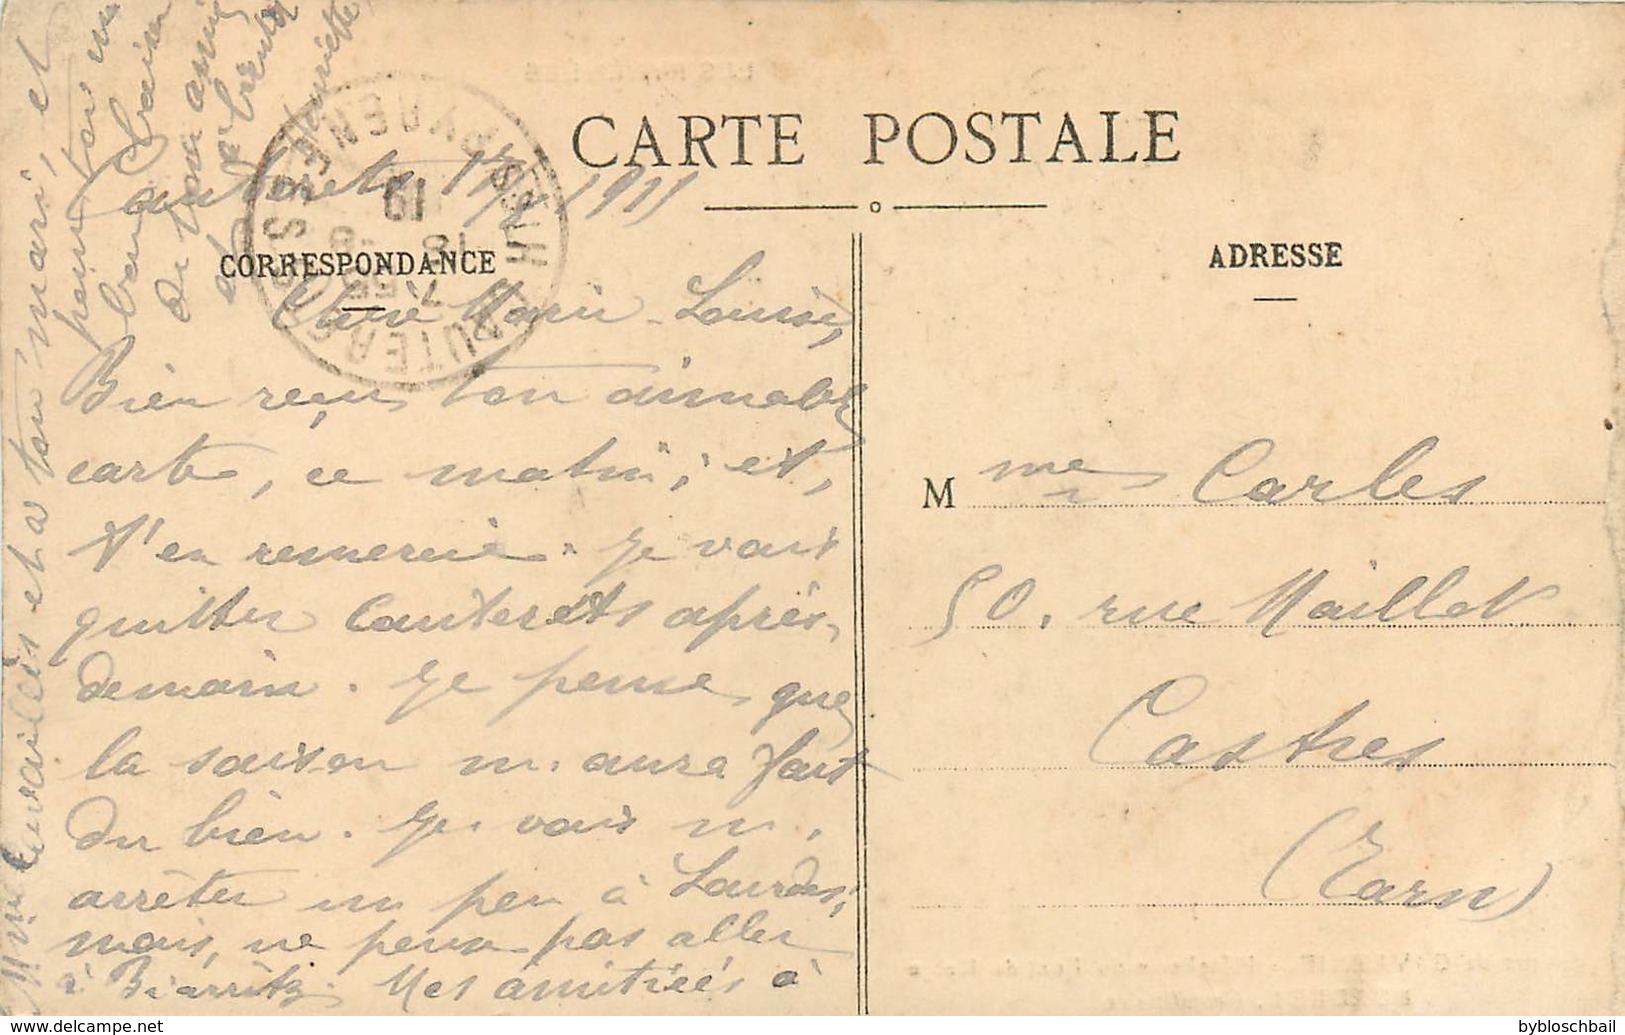 CARTE POSTALE
Cauterets 17/8 1911
CORRESPONDANCE
Chère Marie-Louise,
Bien reçu ton aimable
carte, ce matin, et,
t'en remercie. Je vais
quitter Cauterets après,
demain. Je pense que
la saison m'aura fait
du bien. Je vais m'
arrêter un peu à Lourdes,
mais, ne pense pas aller
à Biarritz. Mes amitiés à
Mme et à ton mari, et
pour toi un
bon baiser
de ton amie
Henriette
ADRESSE
Mme Carles
50, rue Maillot
Castres
(Tarn)
CAUTERETS
HTES PYRENEES
18 -8
7 55
delcampe.net
bybloschbail